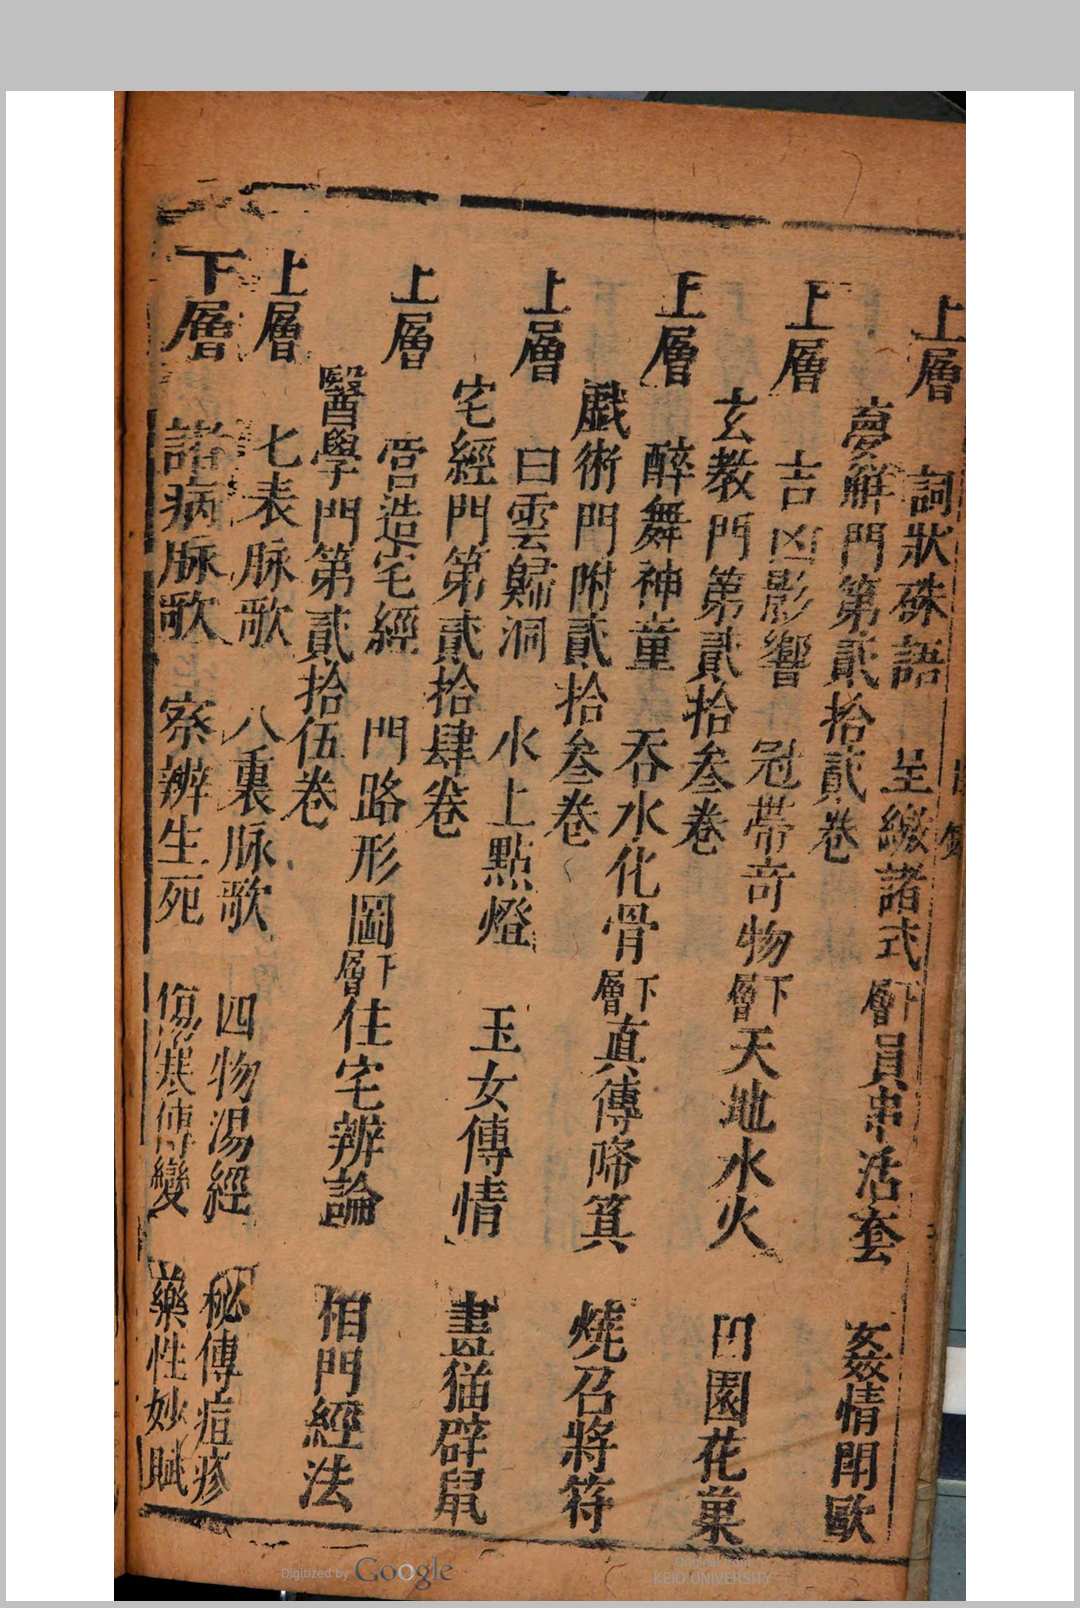 上層 詞狀硃語 呈繳諸式 下層 員串活套 姦情鬥毆
夢解門第貳拾貳卷
上層 吉凶影響 冠帶奇物 下層 天地水火 田園花菓
玄教門第貳拾叄卷
上層 醉舞神童 吞水化骨 下層 真傳啼箕 燒召將符
戲術門附貳拾叄卷
上層 白雲歸洞 水上點燈 玉女傳情 畫猫辟鼠
宅經門第貳拾肆卷
上層 営造宅經 門路形圖 下層 住宅辨論 相門經法
醫學門第貳拾伍卷
上層 七表脉歌 八裏脉歌 四物湯經 秘傳痘疹
下層 諸病脉歌 察辨生死 傷寒傳變 藥性妙賦
Digitized by Google
Original from
KEIO UNIVERSITY